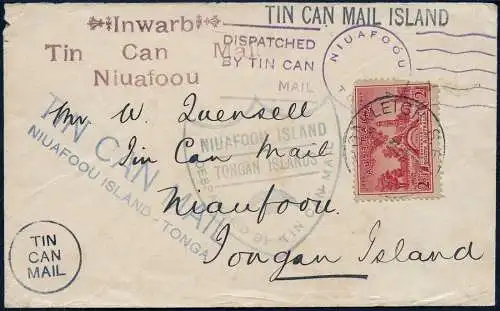 Inward
Tin Can Mail
Niuafoou
TIN CAN MAIL ISLAND
DISPATCHED
BY TIN CAN
MAIL
NIUAFOOU
Mr. W. Quensell
Tin Can Mail
Niuafoou.
Tongan Island
TIN CAN MAIL
NIUAFOOU ISLAND - TONGA
NIUAFOOU ISLAND
TONGAN ISLANDS
BY TIN MAIL
TIN
CAN
MAIL
2D